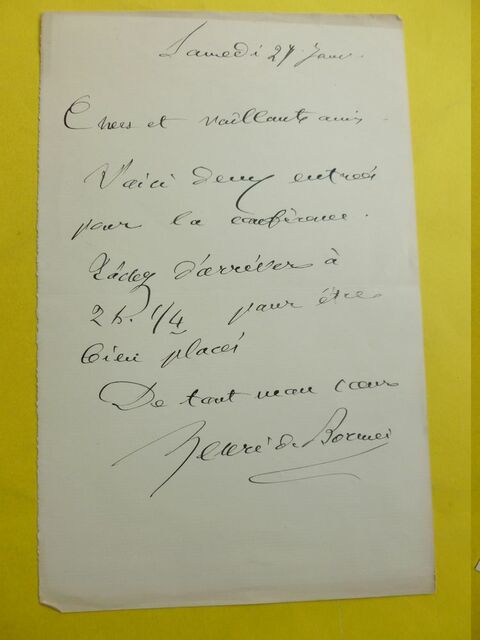 Samedi 27 Janv.
Chers et vaillants amis
Voici deux entrées
pour la conférence.
Tâchez d'arriver à
2 h. 1/4 pour être
bien placés
De tout mon cœur
Henri de Bornier